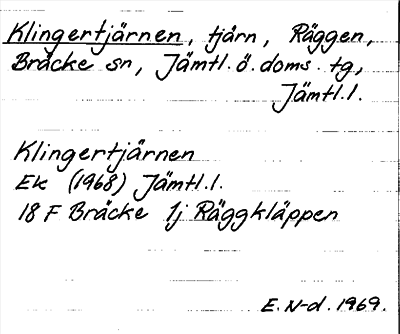 Klingertjärnen, tjärn, Räggen,
Bräcke sn, Jämtl. ö. doms. tg,
Jämtl. l.
Klingertjärnen
Ek (1968) Jämtl. l.
18 F Bräcke 1j Räggkläppen
E. N-d. 1969.